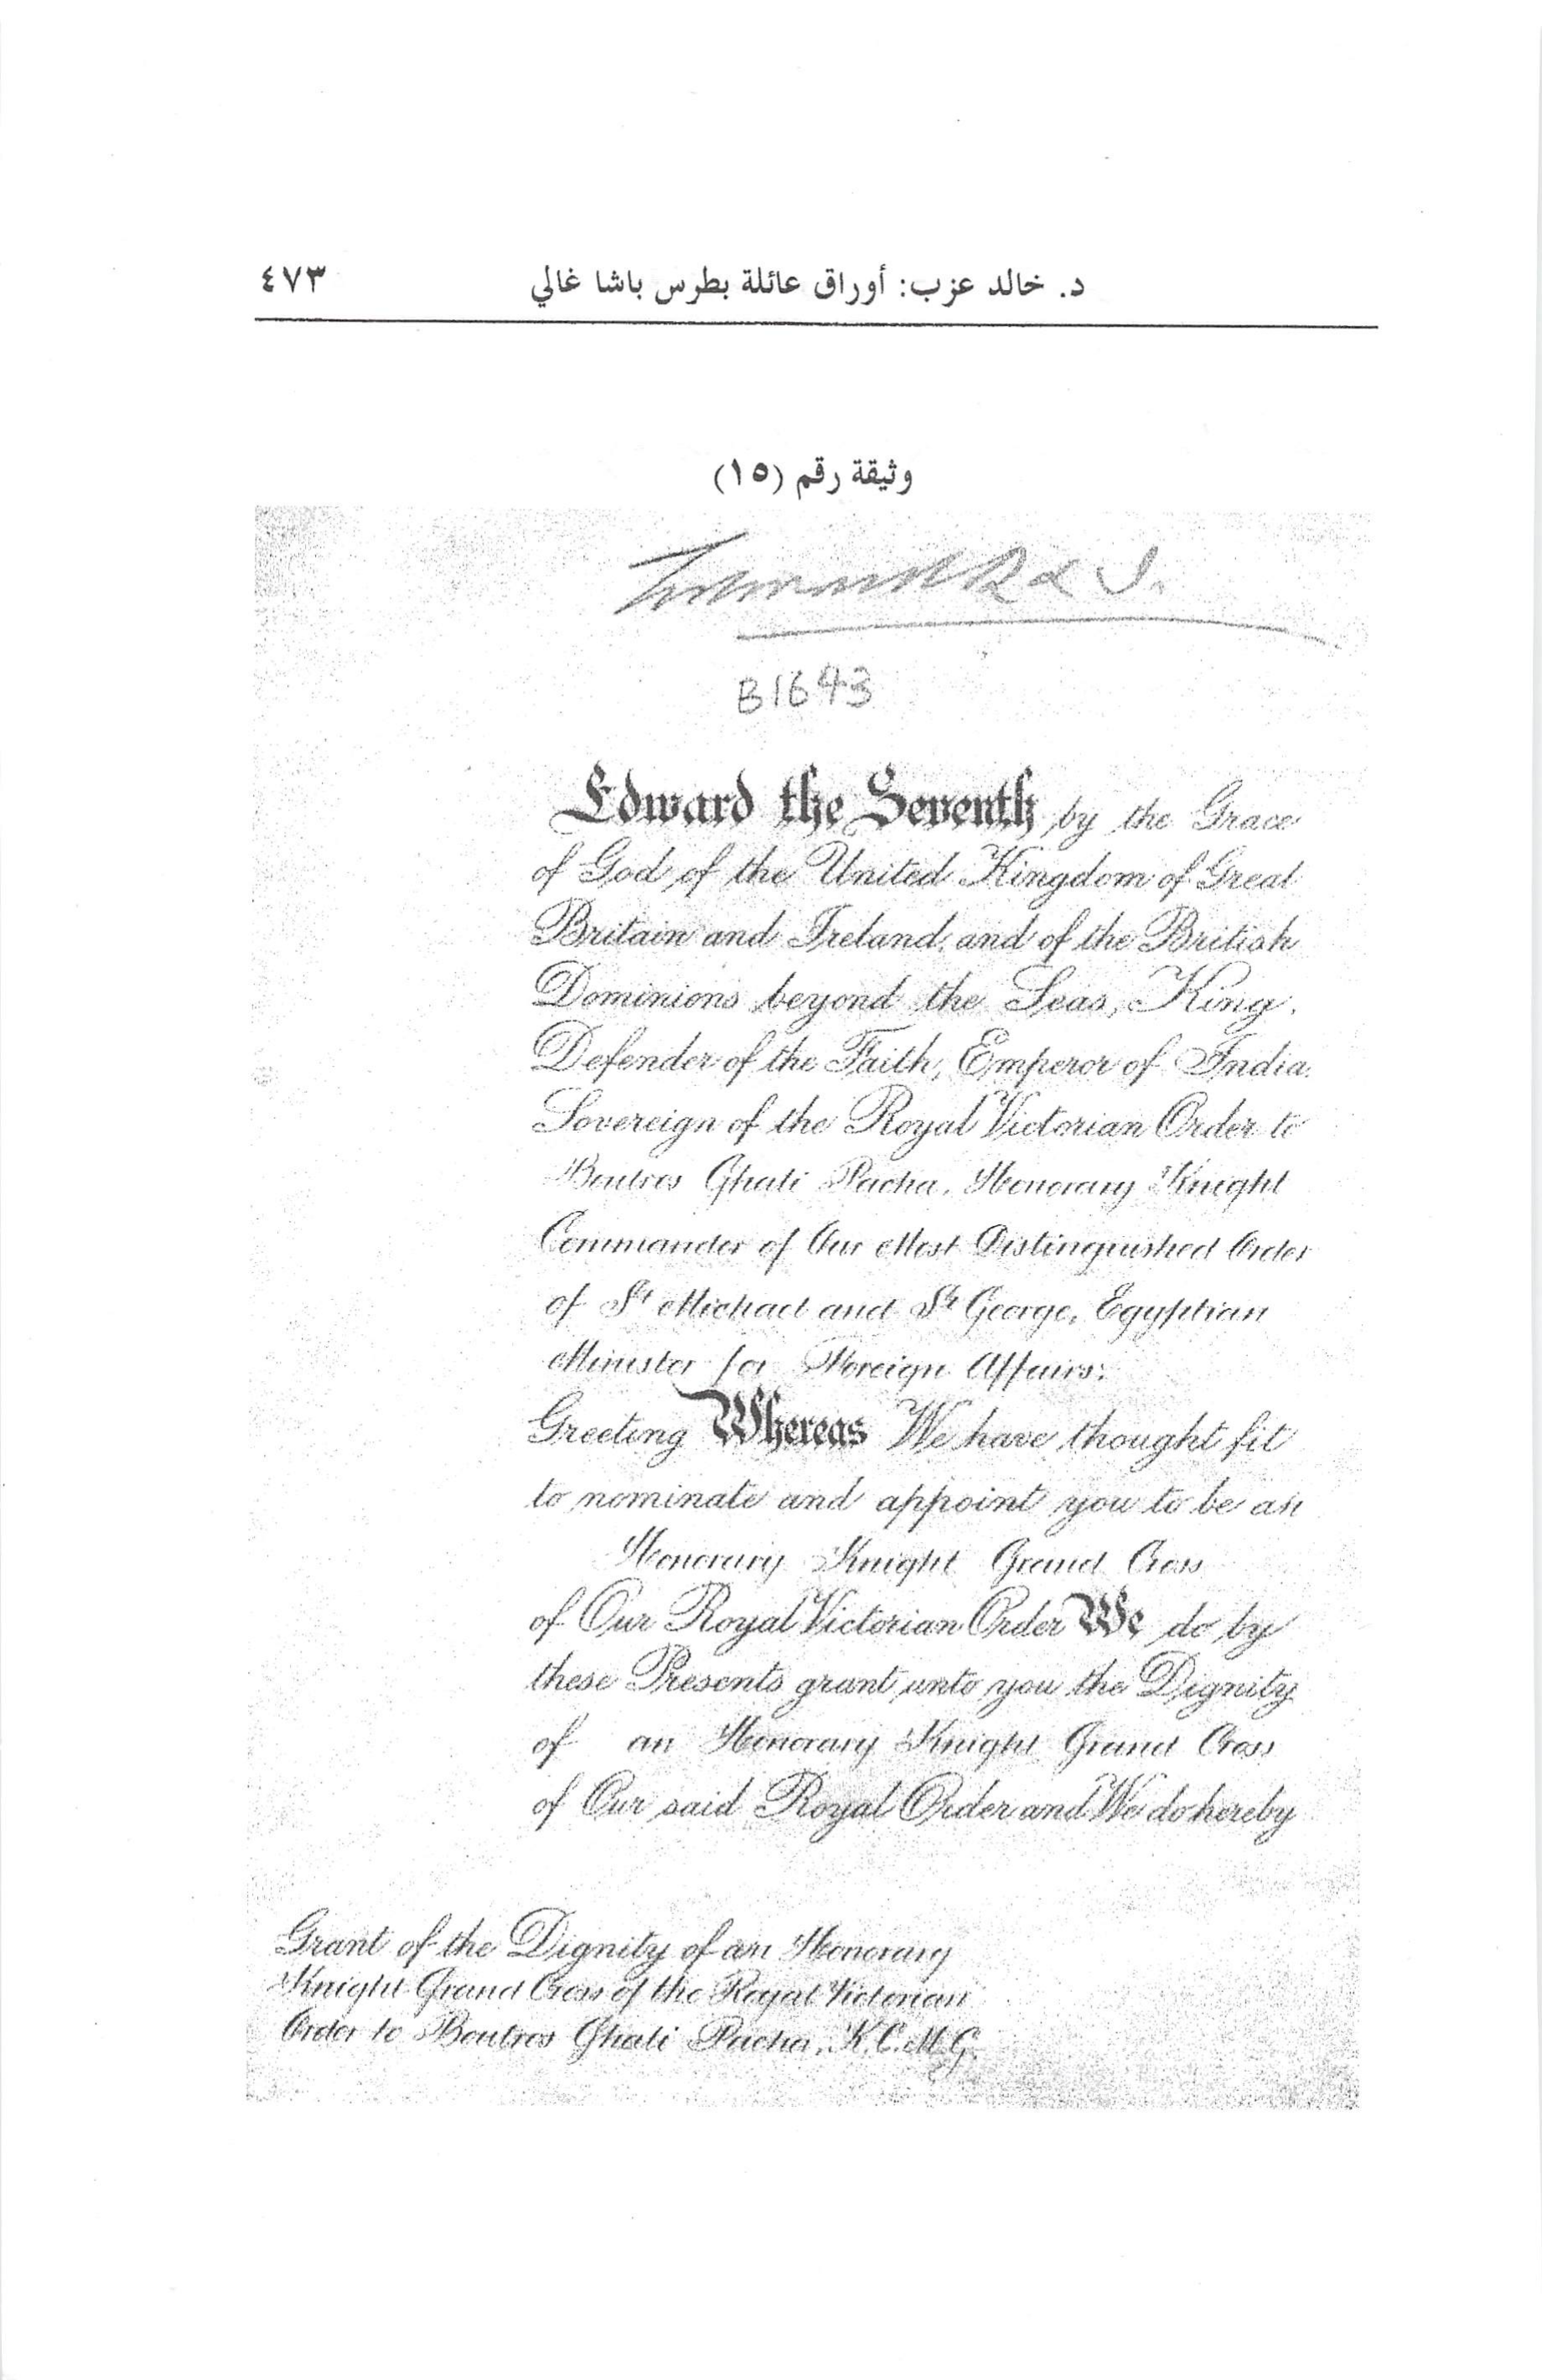 د. خالد عزب: أوراق عائلة بطرس باشا غالي ٤٧٣
وثيقة رقم (١٥)
R & I.
B1643
Edward the Seventh by the Grace
of God of the United Kingdom of Great
Britain and Ireland, and of the British
Dominions beyond the Seas, King,
Defender of the Faith, Emperor of India.
Sovereign of the Royal Victorian Order to
Boutros Ghali Pacha, Honorary Knight
Commander of Our Most Distinguished Order
of St Michael and St George, Egyptian
Minister for Foreign Affairs:
Greeting Whereas We have thought fit
to nominate and appoint you to be an
Honorary Knight Grand Cross
of Our Royal Victorian Order We do by
these Presents grant unto you the Dignity
of an Honorary Knight Grand Cross
of Our said Royal Order and We do hereby
Grant of the Dignity of an Honorary
Knight Grand Cross of the Royal Victorian
Order to Boutros Ghali Pacha, K.C.M.G.